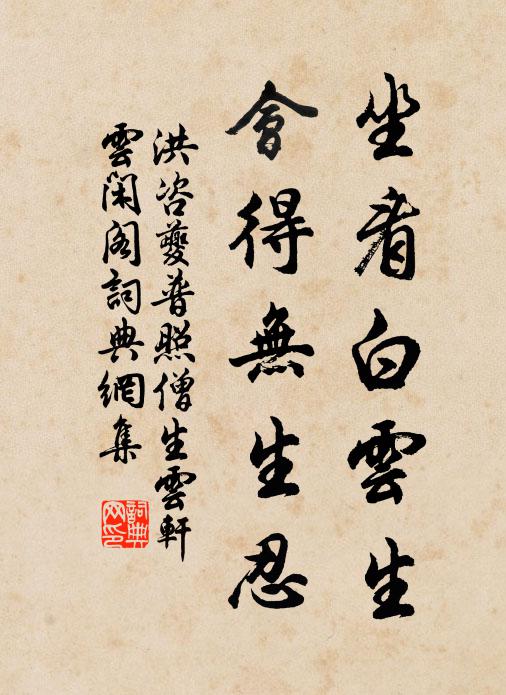 坐看白雲生
會得無生忍
洪咨夔普照僧生雲軒
雲閑阁詞典網集
詞典网印